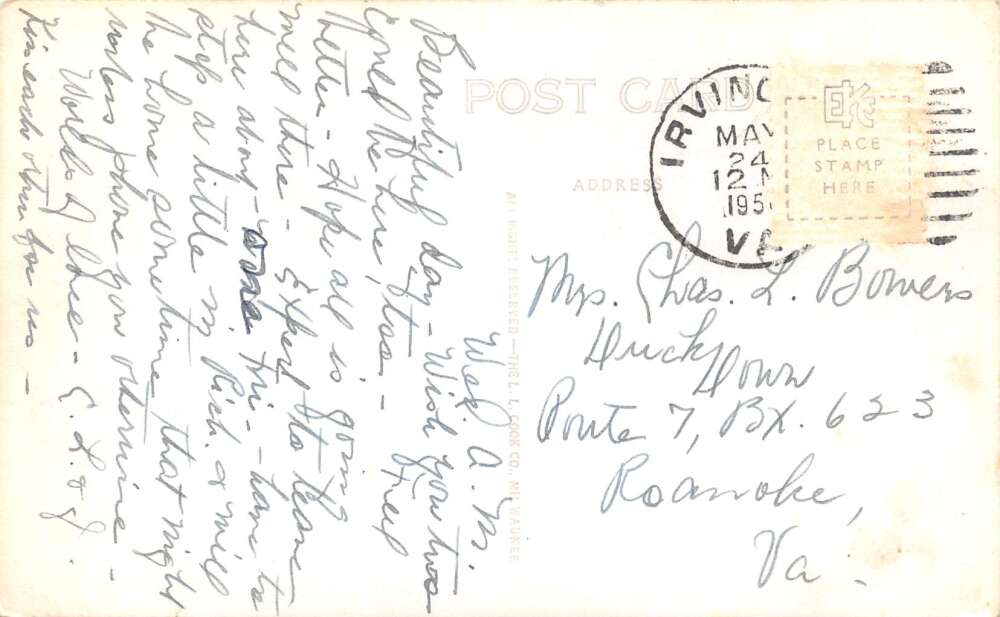 POST CARD
ADDRESS
IRVING
MAY
24
12 M
195
VA
EKC
PLACE
STAMP
HERE
ALL RIGHTS RESERVED—THE L. L. COOK CO., MILWAUKEE
Wed. A.M.
Beautiful day – Wish you two
could be here, too – Feel
better – Hope all is going
well there – Expect to leave
here aboy – Fri – have to
stop a little in Rich. & will
be home sometime that night
unless phone you otherwise –
Worlds of love – E. L. & J.
Kiss each other for us –
Mrs. Chas. L. Bowers
Huck Down
Route 7, BX. 623
Roanoke,
Va.